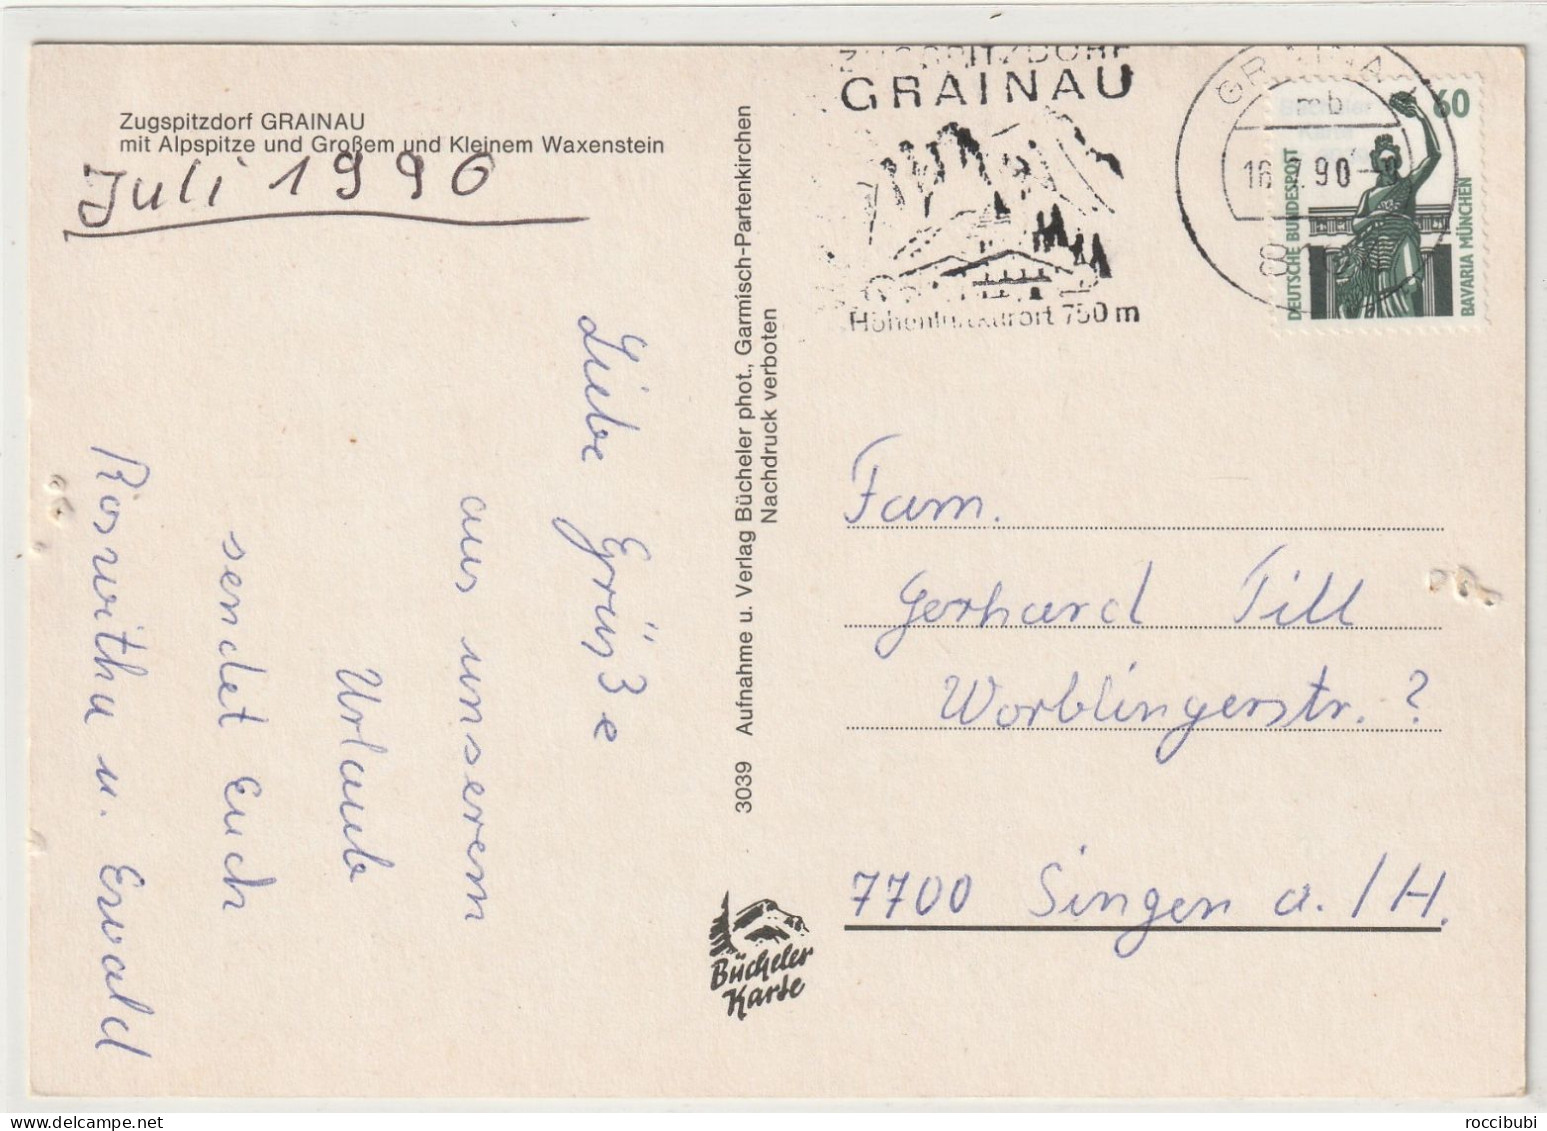 Zugspitzdorf GRAINAU
mit Alpspitze und Großem und Kleinem Waxenstein
Juli 1990
Liebe Grüsse
aus unserem
Urlaub
sendet Euch
Roswitha u. Ewald
3039 Aufnahme u. Verlag Bücheler phot., Garmisch-Partenkirchen
Nachdruck verboten
Bücheler
Karte
ZUGSPITZDORF
GRAINAU
Höhenluftkurort 750 m
GRAINAU
mb
90
60
DEUTSCHE BUNDESPOST
BAVARIA MÜNCHEN
Fam.
Gerhard Till
Worblingerstr. ?
7700 Singen a. / H.
roccibubi